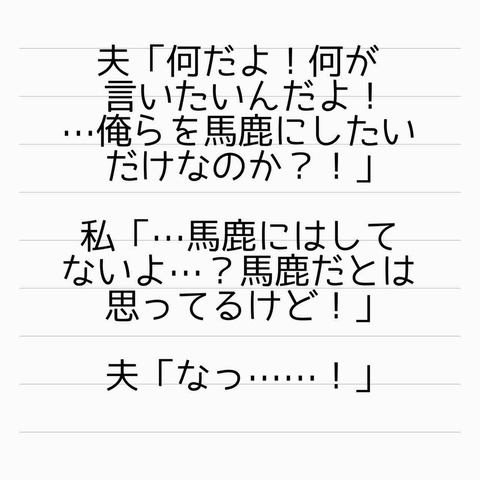 夫「何だよ！何が
言いたいんだよ！
…俺らを馬鹿にしたい
だけなのか？！」
私「…馬鹿にはして
ないよ…？馬鹿だとは
思ってるけど！」
夫「なっ……！」